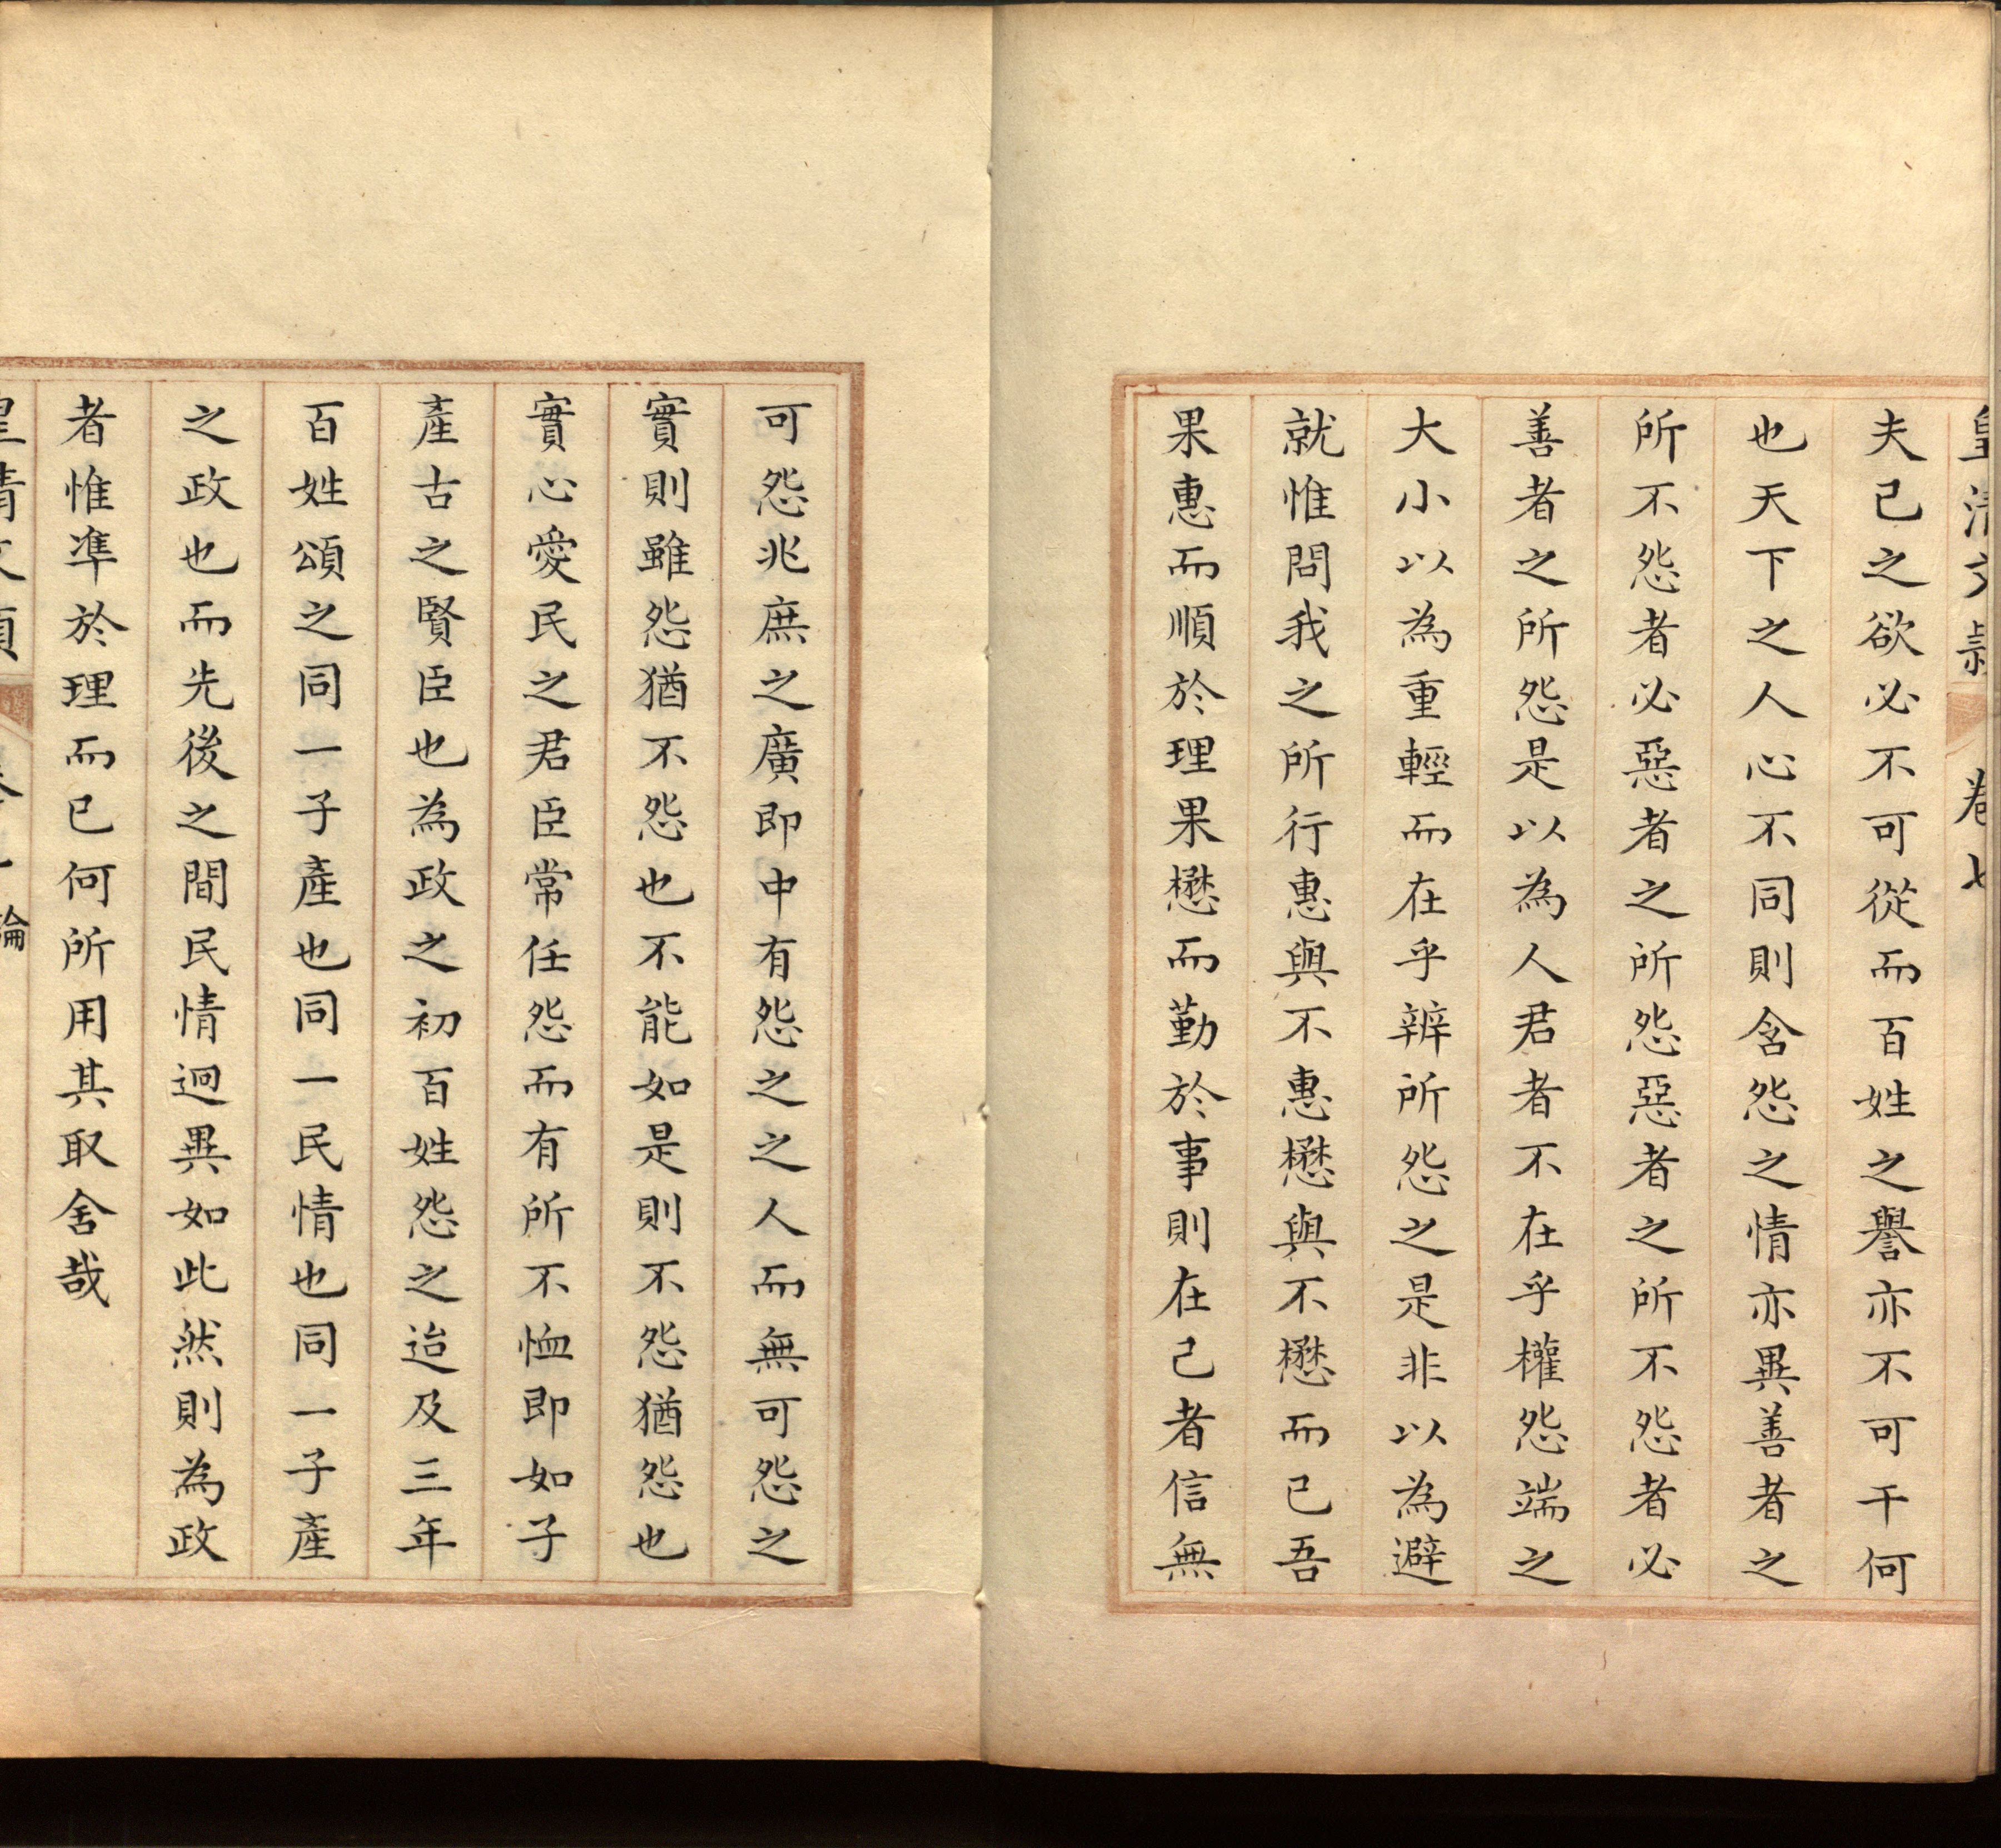 皇清文穎
卷七
夫己之欲必不可從而百姓之譽亦不可干何
也天下之人心不同則含怨之情亦異善者之
所不怨者必惡者之所怨惡者之所不怨者必
善者之所怨是以為人君者不在乎權怨端之
大小以為重輕而在乎辨所怨之是非以為避
就惟問我之所行惠與不惠懋與不懋而已吾
果惠而順於理果懋而勤於事則在己者信無
可怨兆庶之廣即中有怨之之人而無可怨之
實則雖怨猶不怨也不能如是則不怨猶怨也
實心愛民之君臣常任怨而有所不恤即如子
產古之賢臣也為政之初百姓怨之迨及三年
百姓頌之同一子產也同一民情也同一子產
之政也而先後之間民情迥異如此然則為政
者惟準於理而已何所用其取舍哉
皇清文穎
論